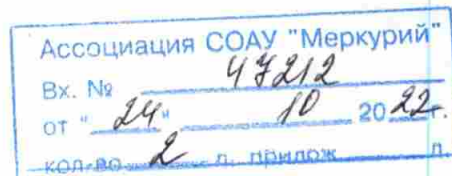 Ассоциация СОАУ "Меркурий"
Вх. № 47212
от "24" 10 2022г.
кол-во 2 л. прилож л.